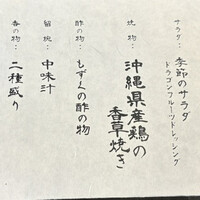 サラダ：季節のサラダ
ドラゴンフルーツドレッシング
焼物：沖縄県産鶏の
香草焼き
酢の物：もずくの酢の物
留椀：中味汁
香の物：二種盛り